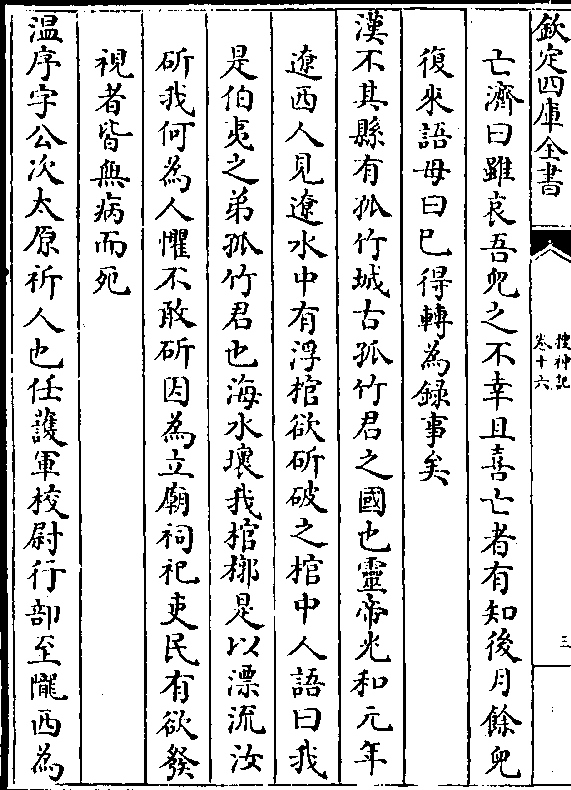 欽定四庫全書
搜神記
卷十六
三
亡濟曰雖哀吾兒之不幸且喜亡者有知後月餘兒
復來語母曰已得轉為録事矣
漢不其縣有孤竹城古孤竹君之國也靈帝光和元年
遼西人見遼水中有浮棺欲斫破之棺中人語曰我
是伯夷之弟孤竹君也海水壞我棺槨是以漂流汝
斫我何為人懼不敢斫因為立廟祠祀吏民有欲發
視者皆無病而死
温序字公次太原祈人也任護軍校尉行部至隴西為